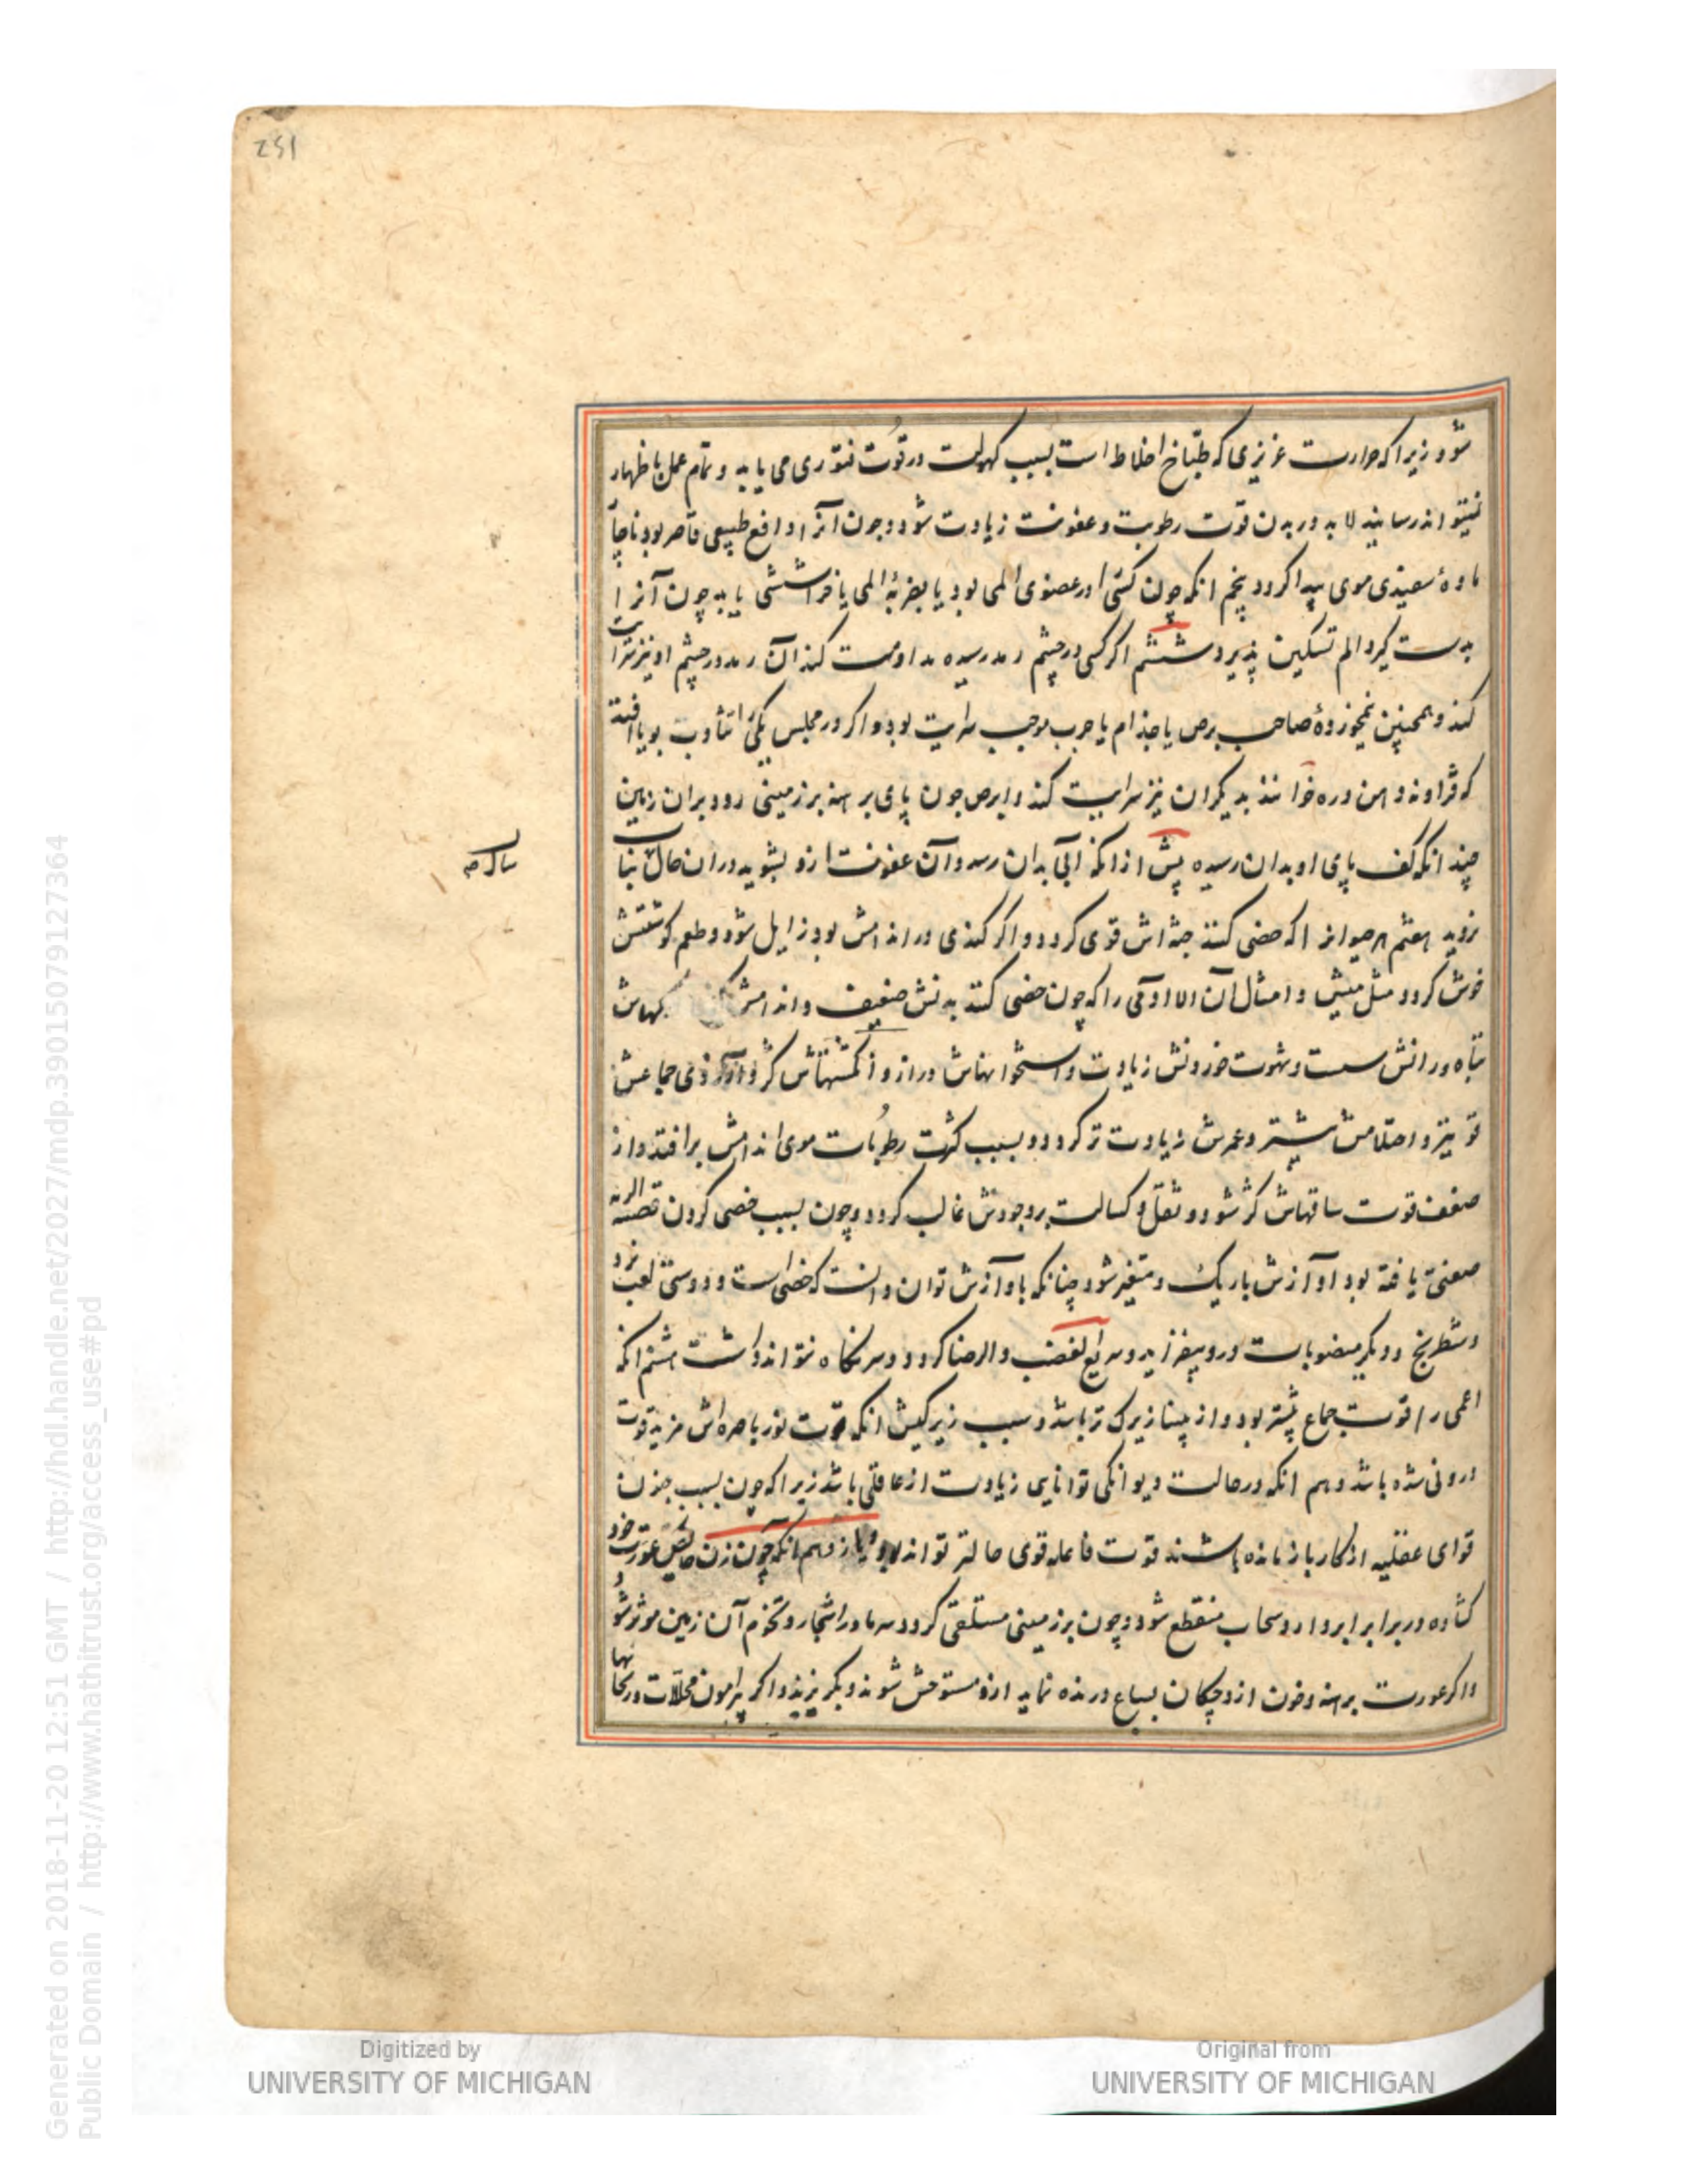 251
شود زیرا که حرارت غریزی که طبّاخ اخلاط است بسبب کهولت در قوت فتوری می یابد و تمام عمل با ظهار
نمیتواند رسانید لابد در بدن قوت رطوبت و عفونت زیادت شود و چون آنرا دافع طبیعی قاصر بود ناچار
مادهٔ سفیدی موی پیدا کردد پنجم انکه چون کسی را در عضوی المی بود یا بضربهٔ المی یا خراششی یابد چون آنرا
بدست کیرد الم تسکین پذیرد ششم اکر کسی در چشم رمد رسیده مداومت کند آن رمد در چشم او نیز سرایت
کند و همچنین نیمخوردهٔ صاحب برص یا جذام یا جرب موجب سرایت بود و اکر در مجلس یکی را تثاوب بود یا افتد
که فراوند و دهن دره خوانند بدیکران نیز سرایت کند و ابرص چون پای برهنه بر زمینی رود بران زمین
چندانکه کف پای او بدان رسیده پیش از انکه آبی بدان رسد و آن عفونت ازو بشوید دران حال نبات
نروید هفتم هر حیوانرا که خصی کنند جثه اش قوی کردد و اکر کندی در اندامش بود زایل شود و طعم کوشتش
خوش کردد مثل میش و امثال آن الا ادمی را که چون خصی کنند بدنش ضعیف و اندامش رکهاش
تباه و رانش سست و شهوت خوردنش زیادت و استخوانهاش دراز و انکشتهاش کژ و آرزوی جماعش
قویتر و احتلامش بیشتر و عمرش زیادت تر کردد و بسبب کثرت رطوبات موی اندامش برافتد و از
ضعف قوت ساقهاش کژ شود و ثقل و کسالت بر وجودش غالب کردد و چون بسبب خصی کردن قصبة الریه
ضعفی یافته بود آوازش باریک و متغیر شود چنانکه بآوازش توان دانست که خصی است و دوستی لعب نرد
و شطرنج و دیکر منصوبات درو بیفزاید و سریع الغضب و الرضا کردد و سر نکاه نتواند داشت هشتم انکه
اعمی را قوت جماع بیشتر بود و از بینا زیرک تر باشد و سبب زیرکیش انکه قوت نور باصره اش مزید قوت
درونی شده باشد نهم انکه در حالت دیوانکی توانایی زیادت از عاقلی باشد زیرا که چون بسبب جنون
قوای عقلیه از کار باز مانده باشند قوت فاعله قوی حالتر تواند بود یازدهم انکه چون زن حایض عورت خود
کشاده در برابر ابر دارد سحاب منقطع شود و چون بر زمینی مستلقی کردد سرما در اشجار و تخوم آن زمین موثر شود
و اکر عورت برهنه و خون ازو چکان بسباع درنده نماید ازو مستوحش شوند و بکریزند و اکر پیرامون محلات در نجاستها
Digitized by
UNIVERSITY OF MICHIGAN
Original from
UNIVERSITY OF MICHIGAN
Generated on 2018-11-20 12:51 GMT / http://hdl.handle.net/2027/mdp.39015079127364
Public Domain / http://www.hathitrust.org/access_use#pd